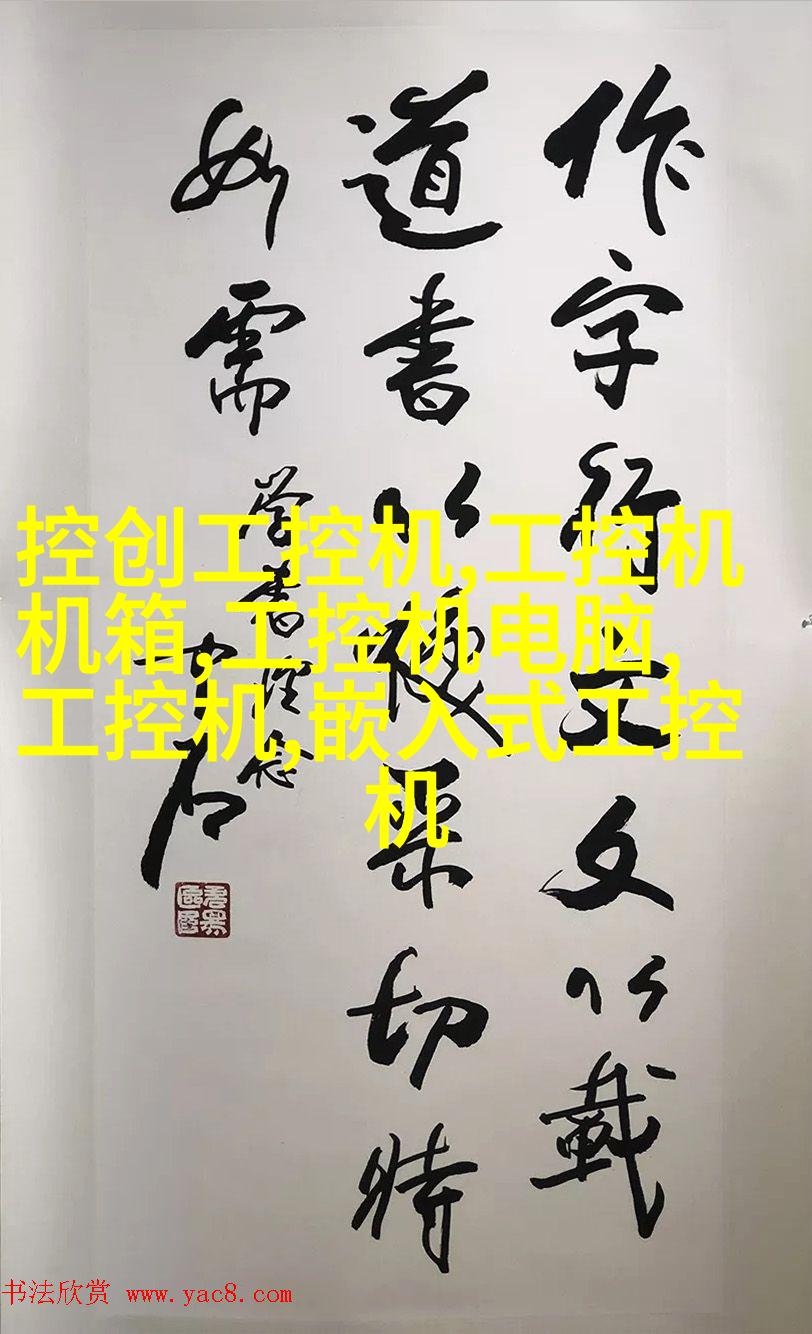 作字行文文以載
道書以煥采切時
如需
学書理念
中石
控创工控机,工控机
机箱,工控机电脑,
工控机,嵌入式工控
机
书法欣赏 www.yac8.com